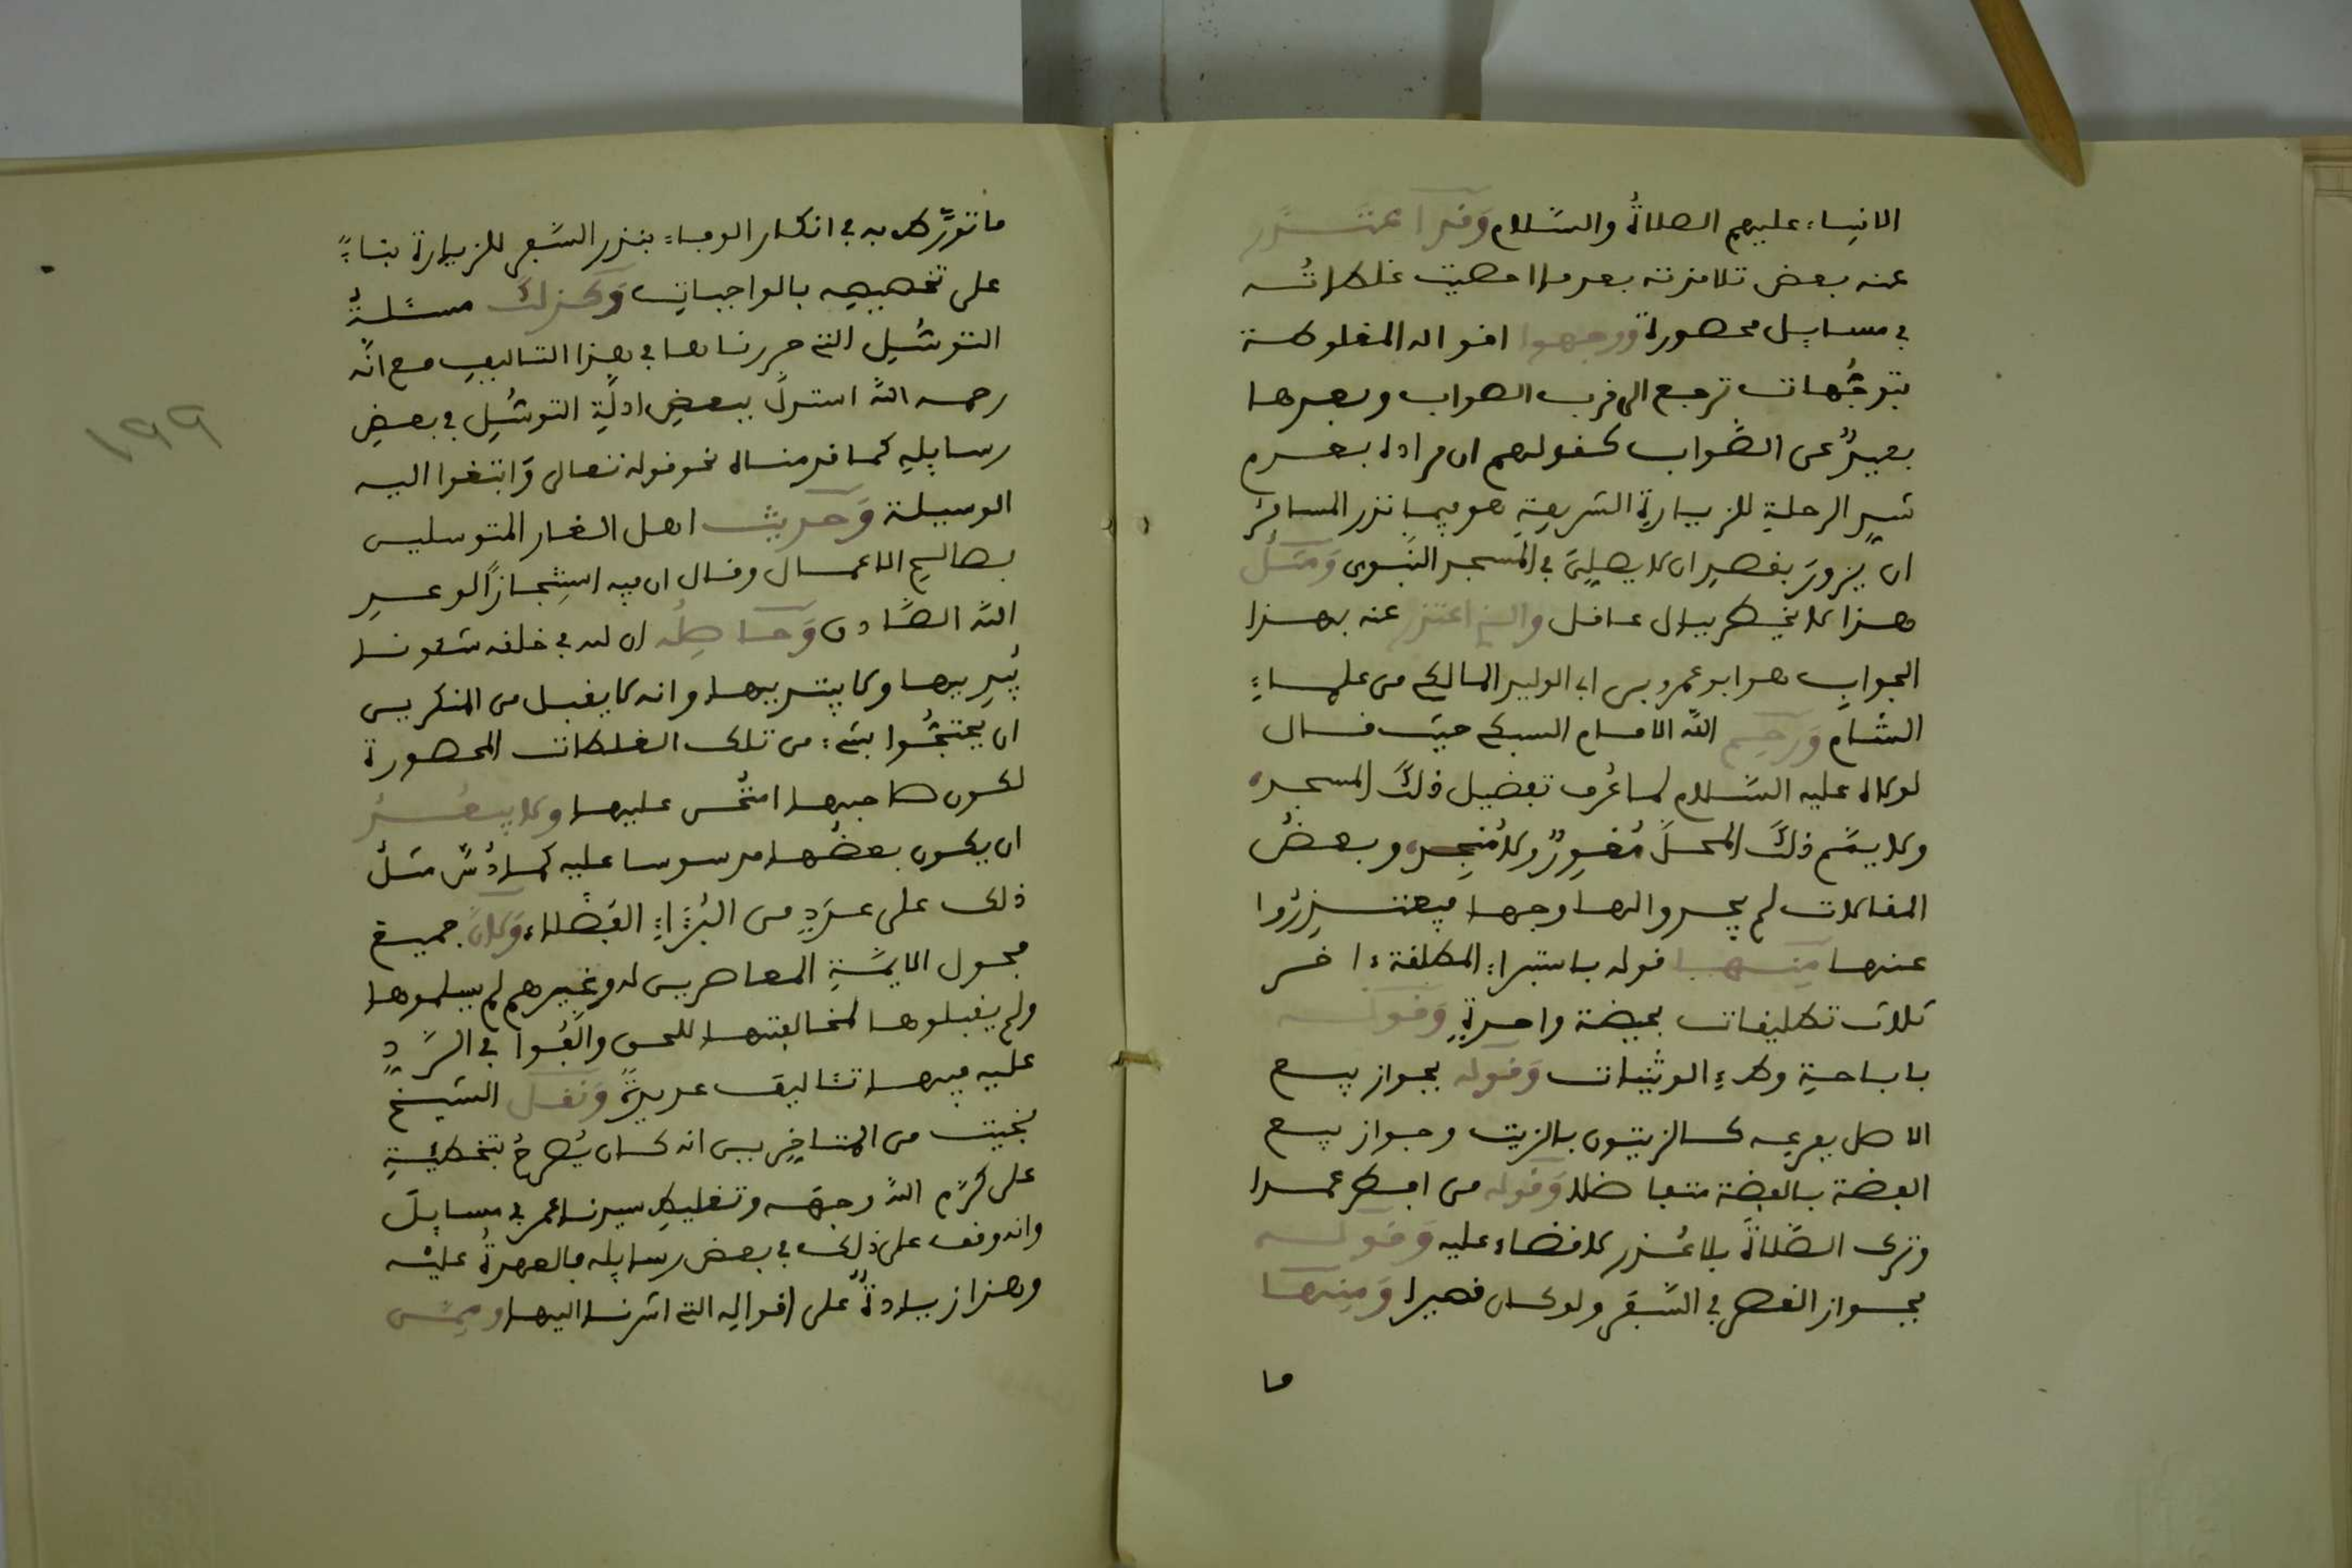 الانبياء عليهم الصلاةُ والسّلام وَقد اعتذر
عنه بعض تلامذته بعدما احصيت غلطاتُه
في مسايل محصورة ووجهوا اقواله المغلوطة
بتوجُّهات ترجع الى قرب الصواب وبعدها
بعيدٌ عن الصَّواب كقولهم ان مراده بعدم
الرحلةِ للزيارةِ الشريفةِ هو فيما نذر المسافرُ
ان يزورَ بقصدِ ان لا يصلِيَ في المسجد النّبوي وَمثلُ
هذا لا يخطر ببال عاقل والذي اعتذر عنه بهذا
الجوابِ هو ابو عمرو بن ابي الوليد المالكي من علماءِ
الشام وَرحِم اللّه الامام السبكي حيث قال
لولاه عليه السَّلام لما عُرف تفضيل ذلكَ المسجد
ولا يمّم ذلكَ المحلَّ مُغوِرٌ ولا مُنجِد وبعضُ
المقالات لم يجدوا لها وجها فيعتذِرُوا
عنها مِنها قوله باستبراء المطلقة ءاخر
ثلاث تطليقات بحيضة واحدةٍ وَقوله
باباحةِ وطءِ الوثنيات وَقوله بجواز بيع
الاصل بفرعه كالزيتون بالزيت وجواز بيع
الفضة بالفضة متفاضلا وَقوله من افطر عمدا
وترك الصَّلاةَ بلا عُذر لا قضاء عليه وَقوله
بجواز القصر في السَّفر ولو كان قصيرا وَمِنها
ما
ما تورَّط به في انكار الوفاء بنذر السَّفر للزيارة بناءً
على تخصيصه بالواجباتِ وَكذلكَ مسئلةُ
التوسُّلِ التي حررناها في هذا التاليفِ مع انّه
رحمه اللّه استدلَّ ببعضِ ادلّةِ التوسُّلِ في بعضِ
رسايلِهِ كما قدمناه نحو قوله تعالى وَابتغوا اليه
الوسيلة وَحديث اهل الغار المتوسلين
بصالحِ الاعمال وقال ان فيه استِنجازًا لوعدِ
اللّه الصَّادق وَحاصِلُه ان لله في خلقه شئونا
يُبديها ولا يبتديها وانه لا يقبل من المنكرين
ان يحتجُّوا بشيء من تلك الغلطات المحصورة
لكون صاحبها امتُحن عليها ولا يبعُدُ
ان يكون بعضُها مدسوسا عليه كما دُسَّ مثلُ
ذلك على عددٍ من البُرَءاءِ الفضلاء وَلانَّ جميع
فحول الايمَّةِ المعاصرين له وغيرهم لم يسلموها
ولم يقبلوها لمخالفتها للحق والّفُوا في الرَّدِّ
عليه فيها تئاليف عديدةً وَنقل الشيخُ
بخيت من المتاخِرين انه كان يُصرحُ بتخطئةِ
على كرّم اللّه وجهَه وتغليطِ سيدنا عمر في مسايلَ
وانه وقف على ذلك في بعض رسايله فالعهدةُ عليْه
وهذا زيادةٌ على اقواله التي اشرنا اليها وممّن
١٩٩